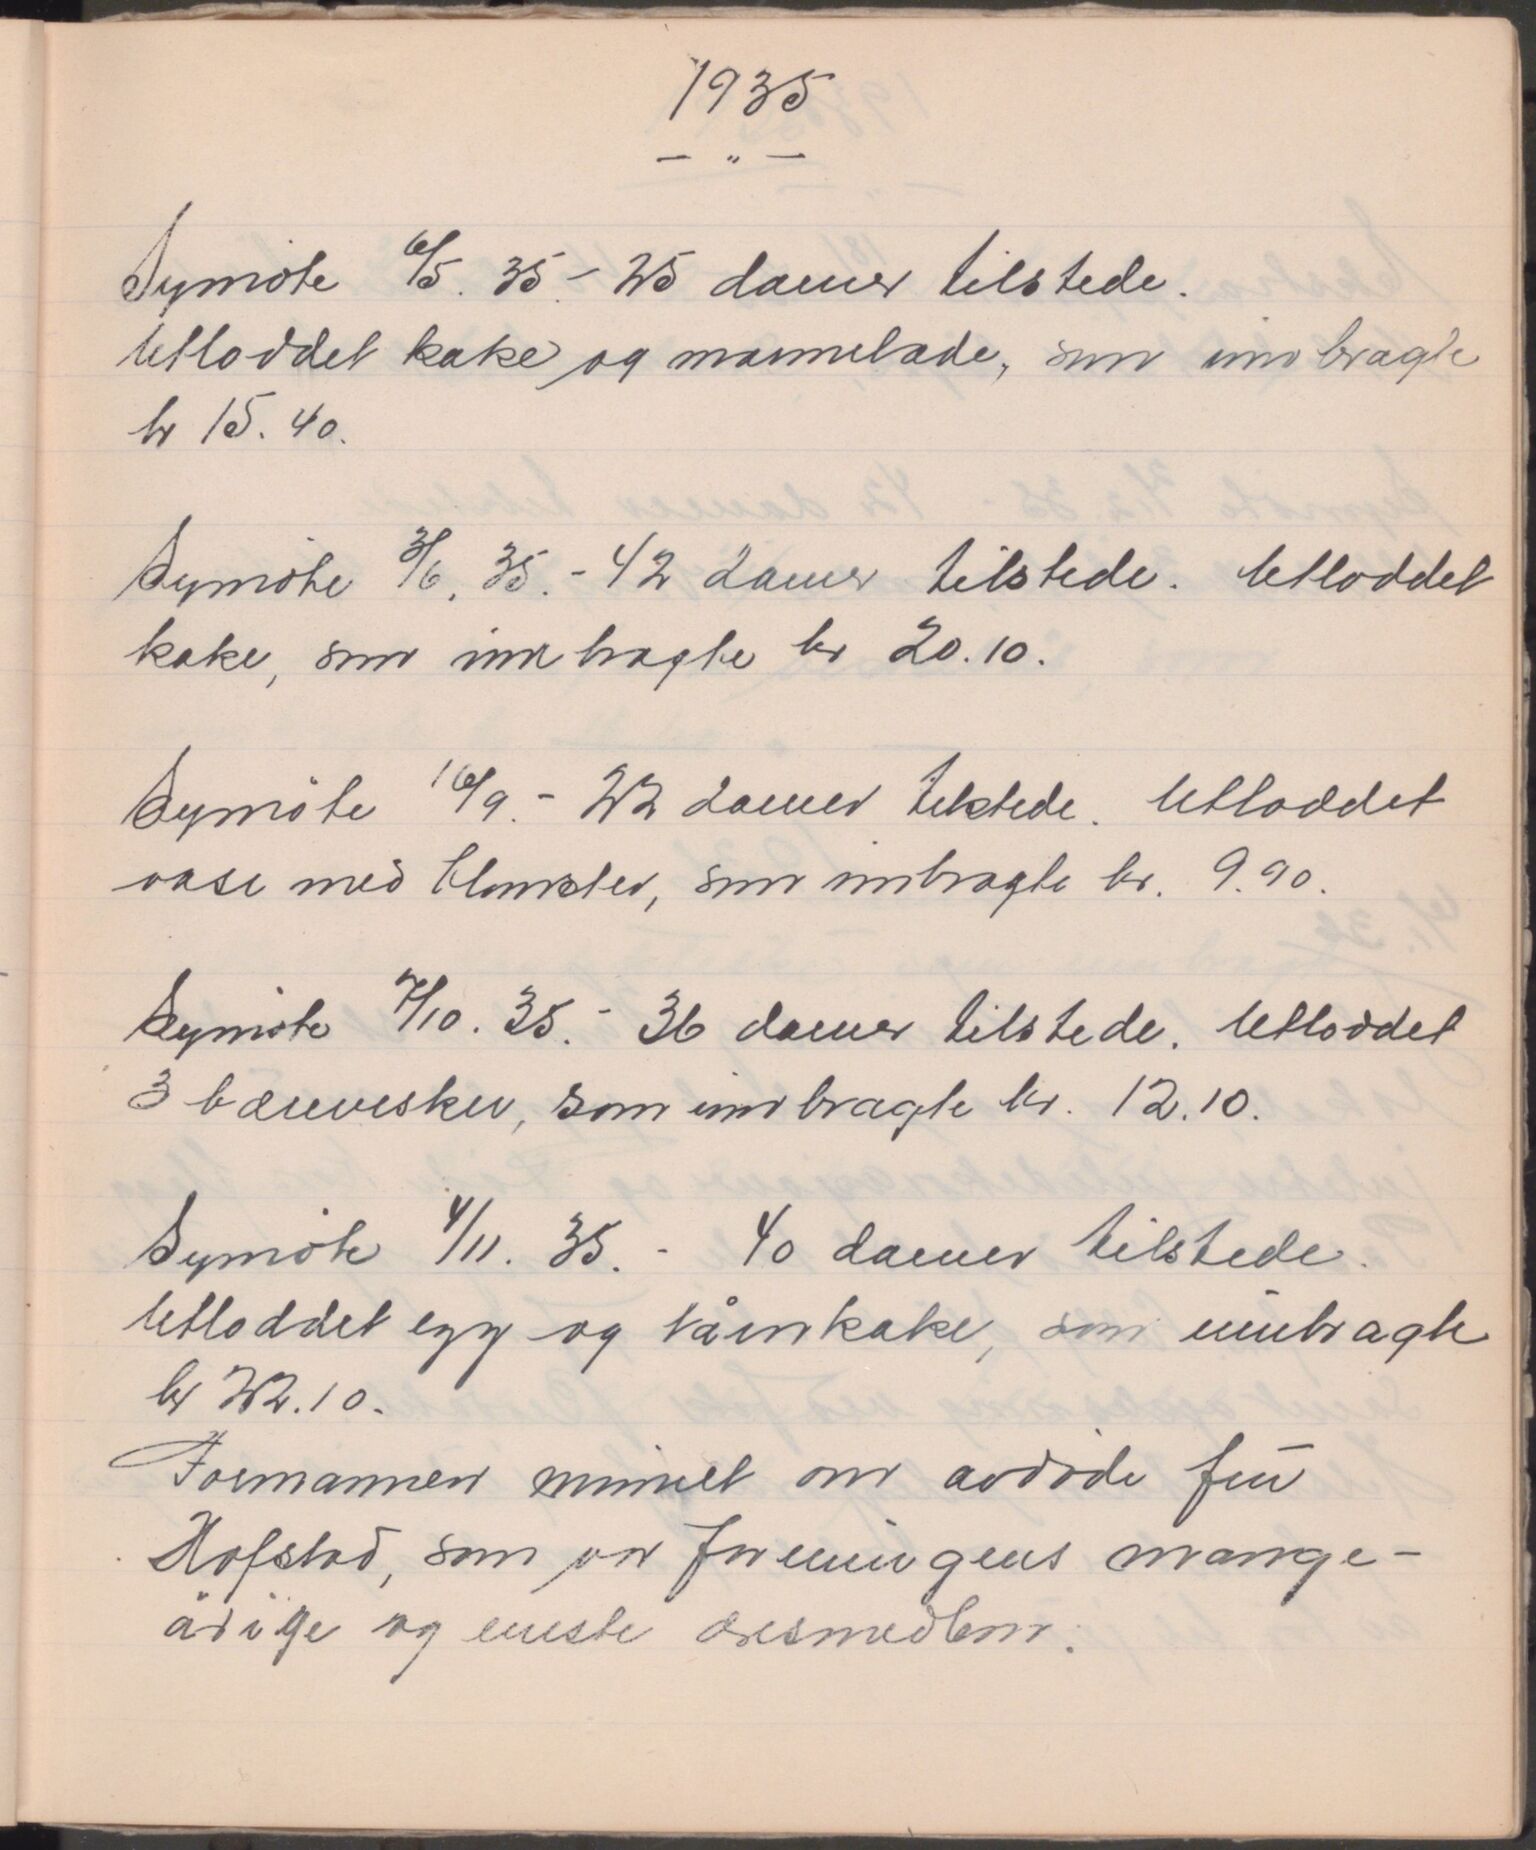 1935
— „ —
Symöte 6/5. 35. - 25 damer tilstede.
Utloddet kake og marmelade, som innbragte
kr 15.40.
Symöte 3/6. 35. - 42 damer tilstede. Utloddet
kake, som innbragte kr 20.10.
Symöte 16/9. - 22 damer tilstede. Utloddet
vase med blomster, som innbragte kr. 9.90.
Symöte 7/10. 35. - 36 damer tilstede. Utloddet
3 bærevesker, som innbragte kr. 12.10.
Symöte 4/11. 35. - 40 damer tilstede.
Utloddet egg og tårnkake, som innbragte
kr 22.10.
Formannen minnet om avdöde fru
Hofstad, som var foreningens mange-
årige og eneste æresmedlem.